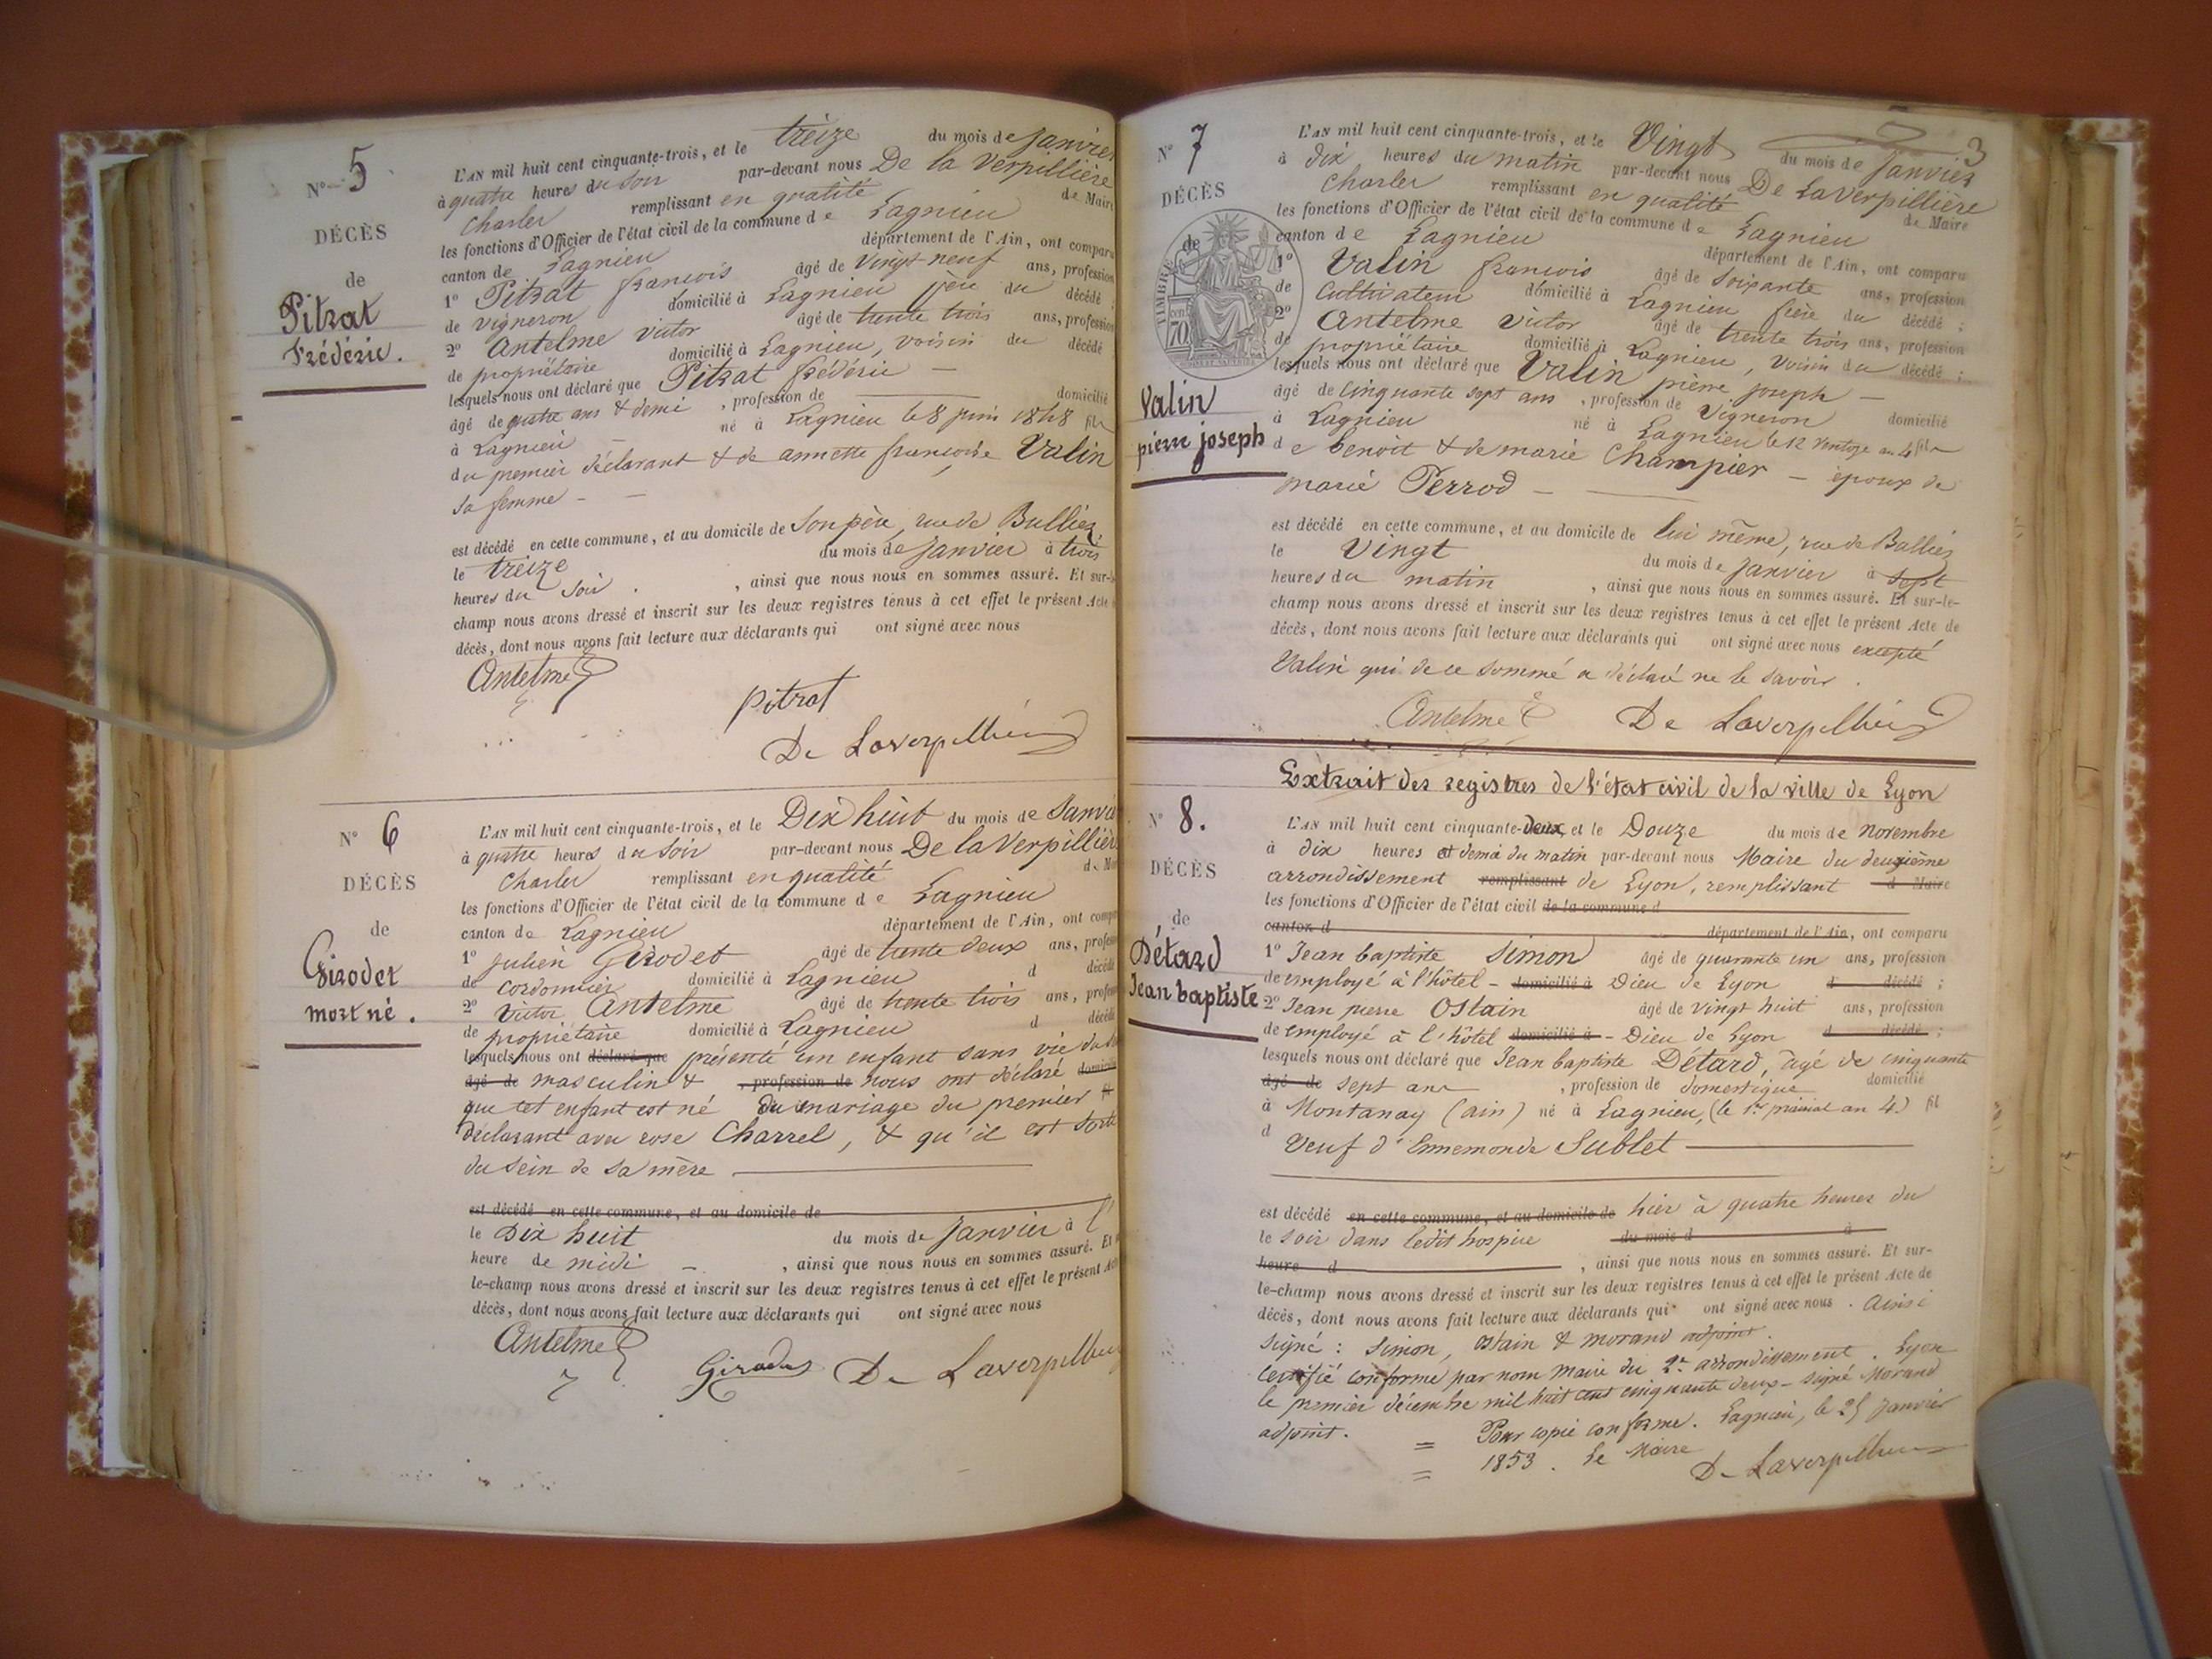 N° 5
DÉCÈS
de
Pitrat
Frédéric.
L'AN mil huit cent cinquante-trois, et le treize du mois de Janvier
à quatre heures du soir par-devant nous De la Verpillière
Charles remplissant en qualité de Maire
les fonctions d'Officier de l'état civil de la commune de Lagnieu
canton de Lagnieu département de l'Ain, ont comparu
1° Pitrat françois âgé de vingt-neuf ans, profession
de vigneron domicilié à Lagnieu père du décédé ;
2° Antelme victor âgé de trente trois ans, profession
de propriétaire domicilié à Lagnieu, voisin du décédé
lesquels nous ont déclaré que Pitrat frédéric —
âgé de quatre ans & demi , profession de domicilié
à Lagnieu né à Lagnieu le 8 juin 1848 fils
du premier déclarant & de annette françoise Valin
sa femme - -
est décédé en cette commune, et au domicile de son père, rue de Bulliez,
le treize du mois de janvier à trois
heures du soir , ainsi que nous nous en sommes assuré. Et sur-le
champ nous avons dressé et inscrit sur les deux registres tenus à cet effet le présent Acte
décès, dont nous avons fait lecture aux déclarants qui ont signé avec nous
Antelme
Pitrat
De Laverpillière
N° 6
DÉCÈS
de
Girodet
mort né.
L'AN mil huit cent cinquante-trois, et le Dix huit du mois de Janvier
à quatre heures du soir par-devant nous De la Verpillière
Charles remplissant en qualité de Maire
les fonctions d'Officier de l'état civil de la commune de Lagnieu
canton de Lagnieu département de l'Ain, ont comparu
1° julien Girodet âgé de trente deux ans, profession
de cordonnier domicilié à Lagnieu d décédé
2° Victor Antelme âgé de trente trois ans, profession
de propriétaire domicilié à Lagnieu d décédé
lesquels nous ont déclaré que présenté un enfant sans vie du
âgé de masculin & , profession de nous ont déclaré domicilié
que cet enfant est né du mariage du premier
déclarant avec rose Charrel, & qu'il est sorti
du sein de sa mère
est décédé en cette commune, et au domicile de
le Dix huit du mois de janvier à l'
heure de midi - , ainsi que nous nous en sommes assuré. Et
le-champ nous avons dressé et inscrit sur les deux registres tenus à cet effet le présent Acte
décès, dont nous avons fait lecture aux déclarants qui ont signé avec nous
Antelme
Girodet De Laverpillière
3
N° 7
DÉCÈS
de
TIMBRE
70
Valin
pierre joseph
L'AN mil huit cent cinquante-trois, et le Vingt du mois de Janvier
à dix heures du matin par-devant nous De Laverpillière
Charles remplissant en qualité de Maire
les fonctions d'Officier de l'état civil de la commune de Lagnieu
canton de Lagnieu département de l'Ain, ont comparu
1° Valin françois âgé de soixante ans, profession
de Cultivateur domicilié à Lagnieu frère du décédé ;
2° Antelme Victor âgé de trente trois ans, profession
de propriétaire domicilié à Lagnieu, voisin du décédé ;
lesquels nous ont déclaré que Valin pierre joseph —
âgé de Cinquante sept ans , profession de Vigneron domicilié
à Lagnieu né à Lagnieu le 12 Ventoze an 4 fils
de benoit & de marie Champier — époux de
marie Perrod —
est décédé en cette commune, et au domicile de lui même, rue de Bulliez
le Vingt du mois de janvier à sept
heures du matin , ainsi que nous nous en sommes assuré. Et sur-le-
champ nous avons dressé et inscrit sur les deux registres tenus à cet effet le présent Acte de
décès, dont nous avons fait lecture aux déclarants qui ont signé avec nous excepté
Valin qui de ce sommé a déclaré ne le savoir.
Antelme De Laverpillière
Extrait des registres de l'état civil de la ville de Lyon
N° 8.
DÉCÈS
de
Détard
Jean baptiste
L'AN mil huit cent cinquante-deux, et le Douze du mois de novembre
à dix heures et demie du matin par-devant nous Maire du deuxième
arrondissement remplissant de Lyon, remplissant d Maire
les fonctions d'Officier de l'état civil de la commune d
canton d département de l'Ain, ont comparu
1° Jean baptiste Simon âgé de quarante un ans, profession
de employé à l'hôtel - domicilié à Dieu de Lyon d décédé ;
2° Jean pierre Ostain âgé de vingt huit ans, profession
de employé à l'hôtel domicilié à - Dieu de Lyon d décédé ;
lesquels nous ont déclaré que Jean baptiste Détard, âgé de cinquante
âgé de sept ans , profession de domestique domicilié
à Montanay (ain) né à Lagnieu, (le 1er prairial an 4) fil
d Veuf d'Ennemonde Sublet
est décédé en cette commune, et au domicile de hier à quatre heures du
le soir dans ledit hospice du mois d à
heure d , ainsi que nous nous en sommes assuré. Et sur-
le-champ nous avons dressé et inscrit sur les deux registres tenus à cet effet le présent Acte de
décès, dont nous avons fait lecture aux déclarants qui ont signé avec nous. Ainsi
signé : Simon, Ostain & morand adjoint.
Certifié conforme par nous maire du 2e arrondissement. Lyon
le premier décembre mil huit cent cinquante deux - signé Morand
adjoint. = Pour copie conforme. Lagnieu, le 25 Janvier
= 1853. Le Maire
De Laverpillière